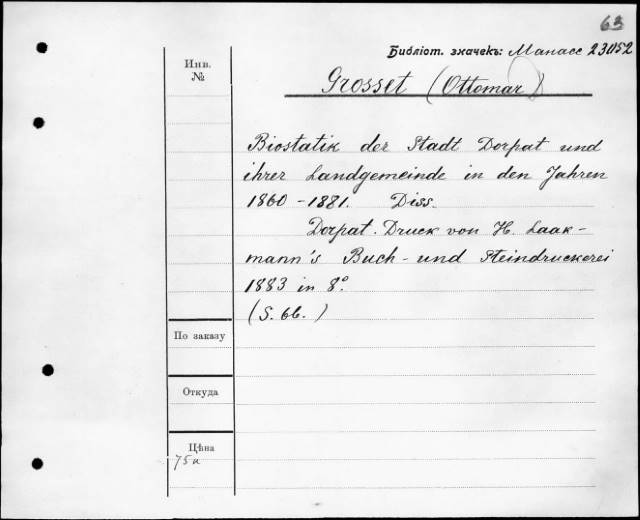 63
Библіот. значекъ: Манасс 23052
Инв.
№
Grosset (Ottomar)
Biostatik der Stadt Dorpat und
ihrer Landgemeinde in den Jahren
1860-1881. Diss.
Dorpat. Druck von H. Laak-
mann's Buch- und Steindruckerei
1883 in 8°.
(S. 66.)
По заказу
Откуда
Цѣна
75к